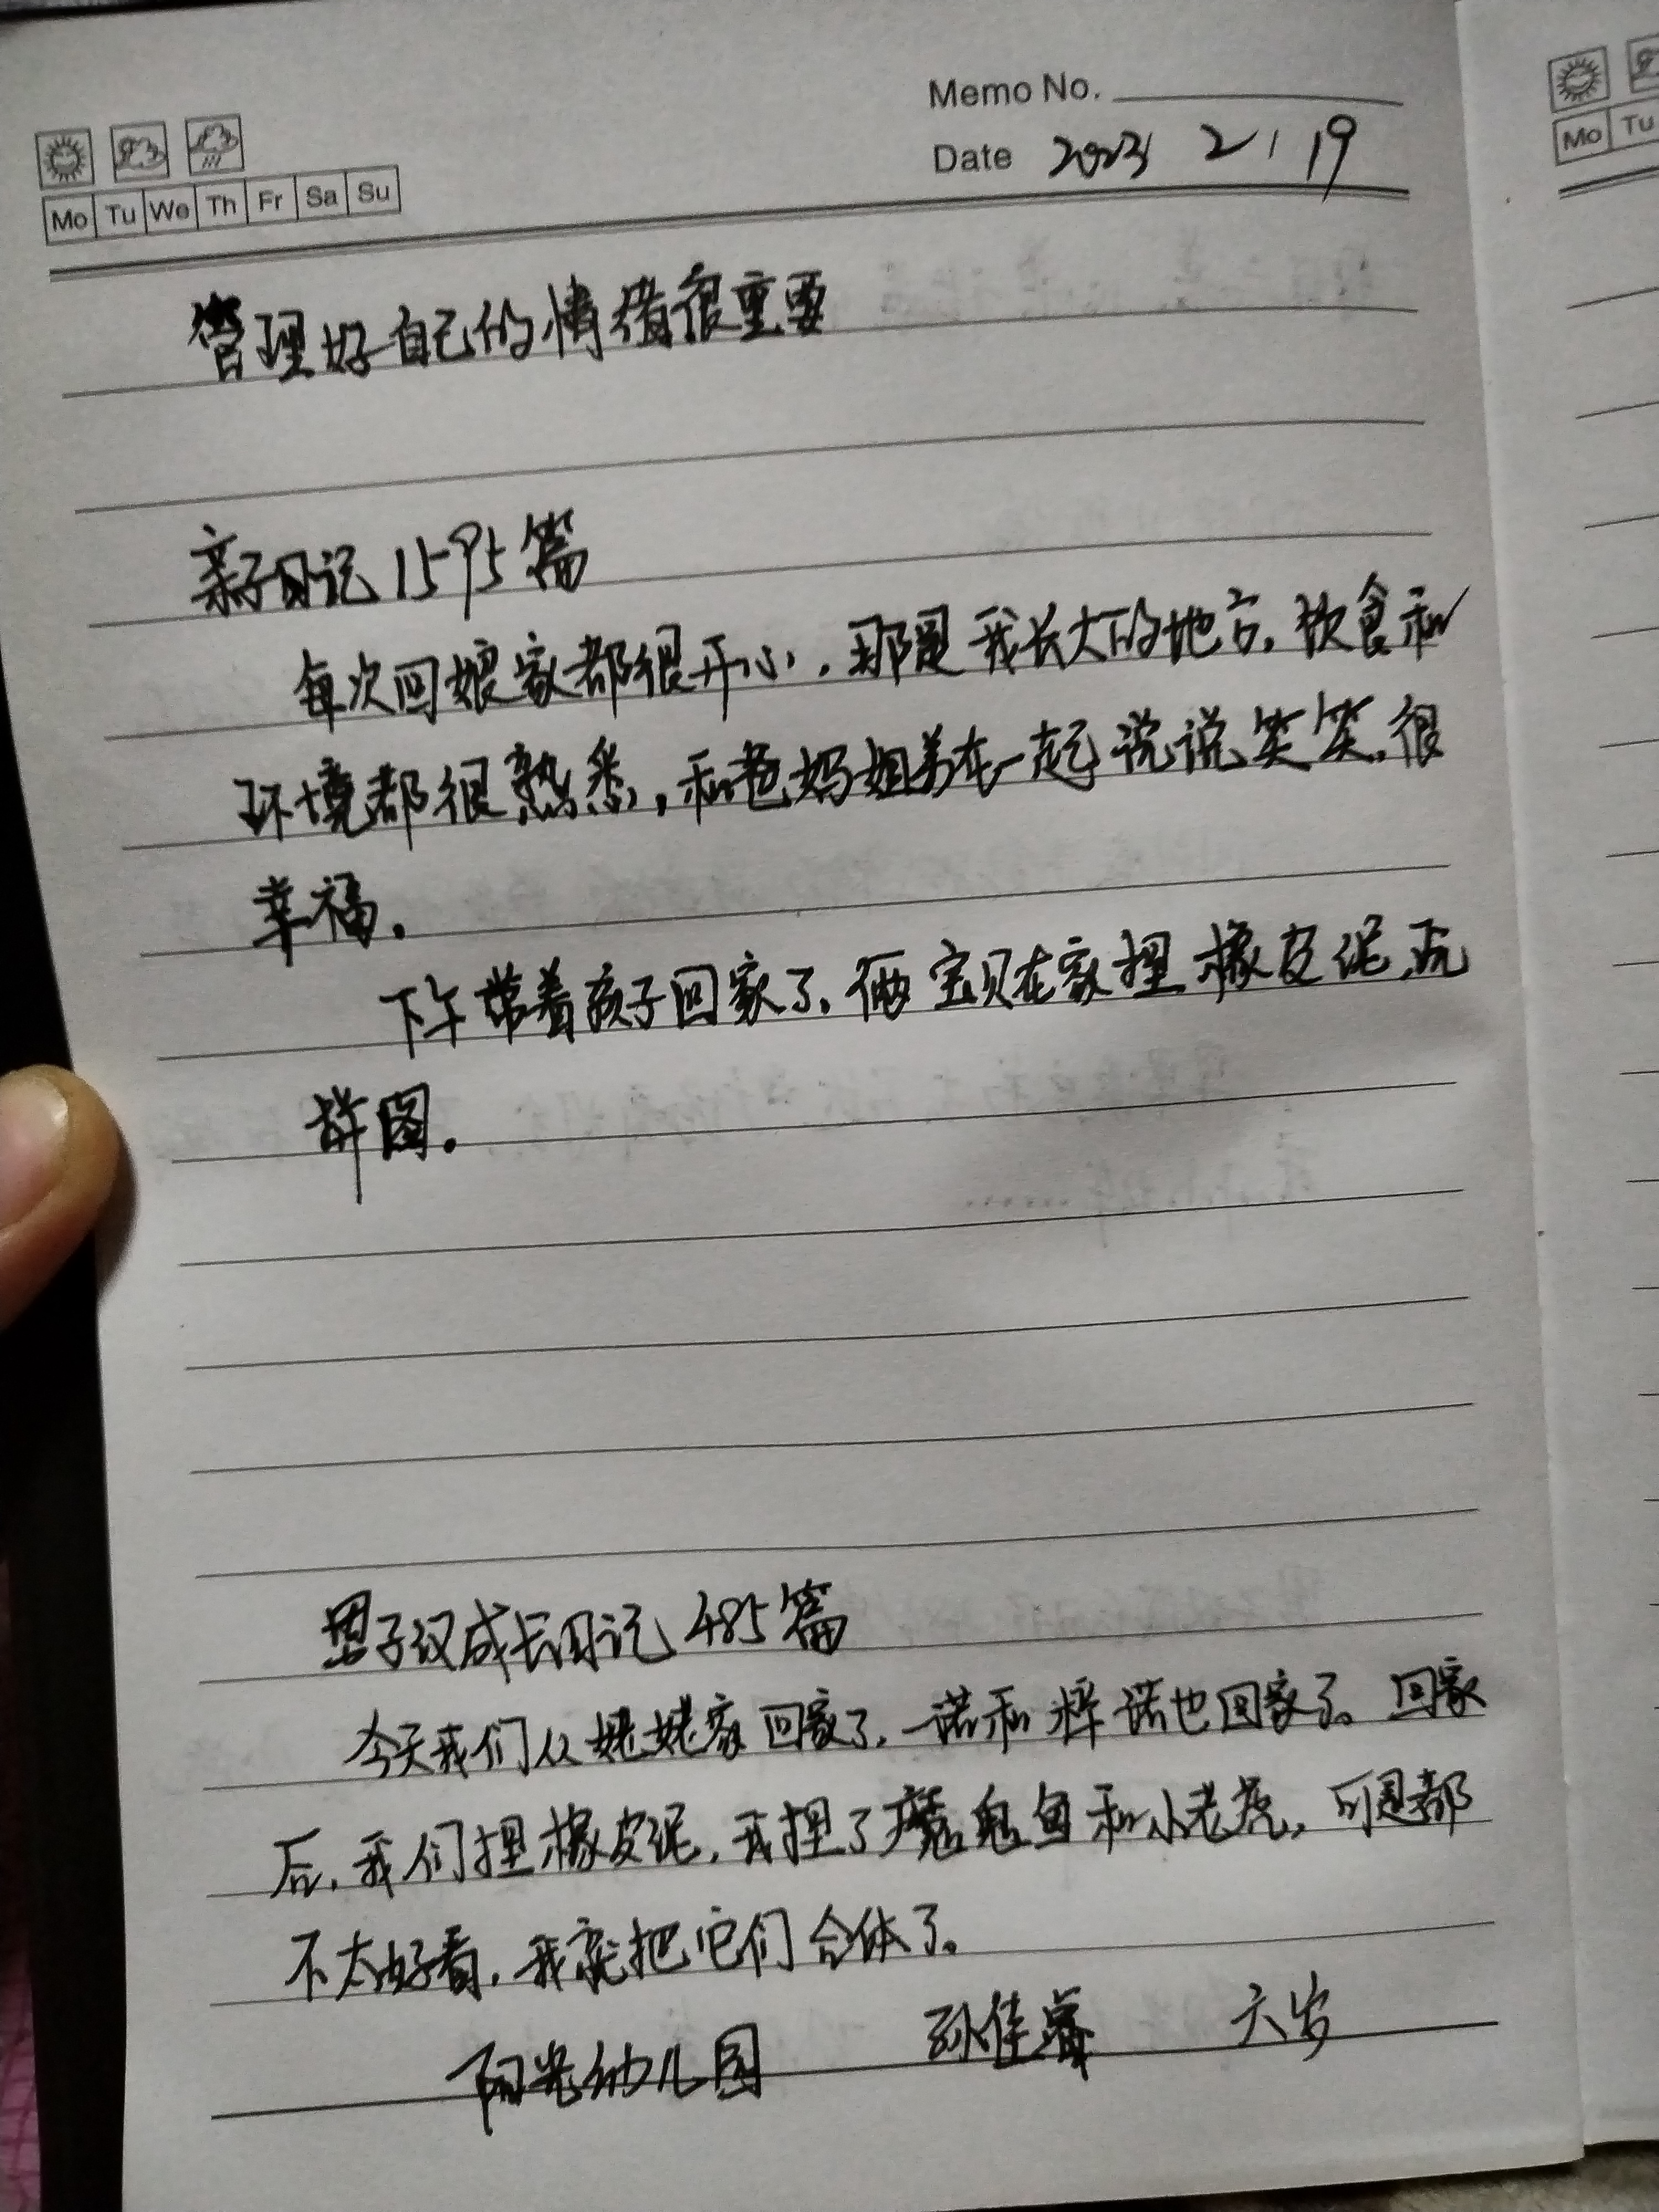 Memo No.
Date 2023 2, 19
Mo Tu We Th Fr Sa Su
Mo Tu
管理好自己的情绪很重要
亲子日记1595篇
每次回娘家都很开心,那是我长大的地方,饮食和
环境都很熟悉,和爸妈姐弟在一起说说笑笑,很
幸福.
下午带着孩子回家了,俩宝贝在家捏橡皮泥,玩
拼图.
男子汉成长日记485篇
今天我们从姥姥家回家了,一诺和梓诺也回家了。回家
后,我们捏橡皮泥,我捏了魔鬼鱼和小老虎,可是都
不太好看,我就把它们合体了。
阳光幼儿园 孙佳睿 六岁